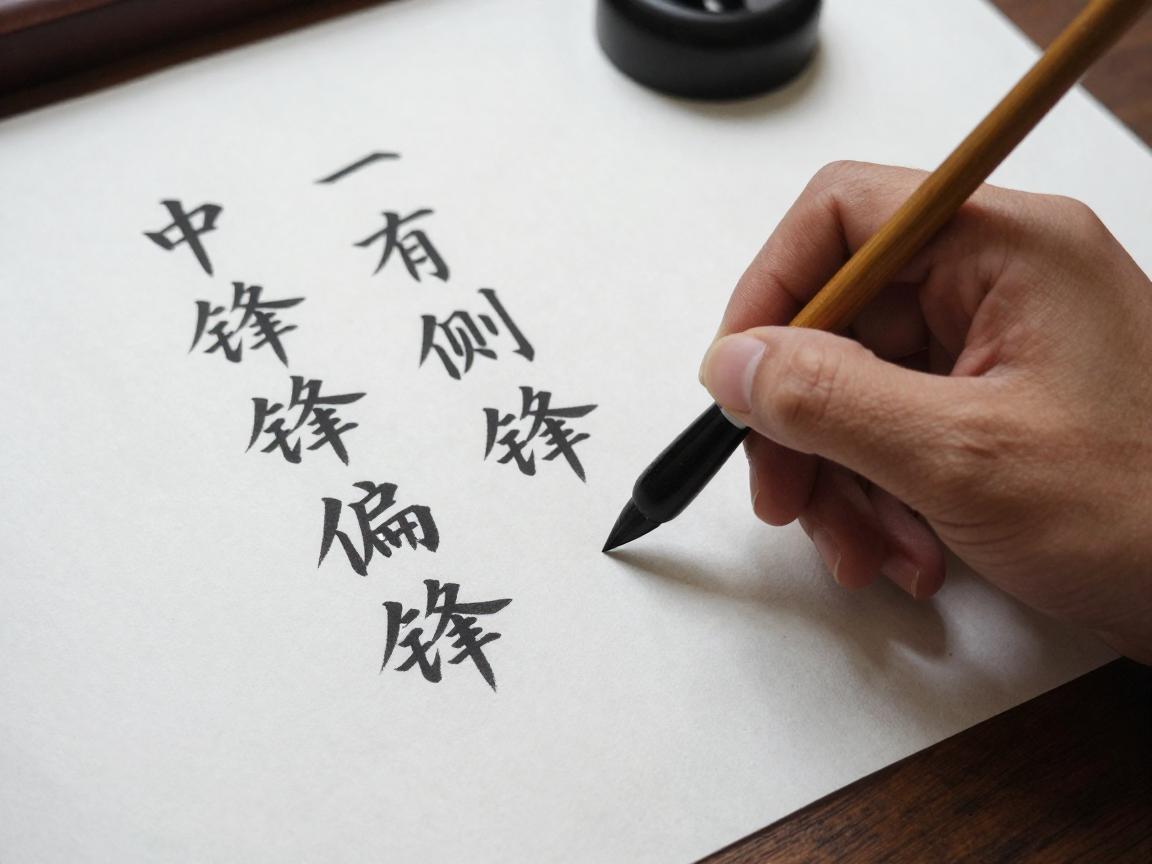 一有侧锋
中锋锋偏锋